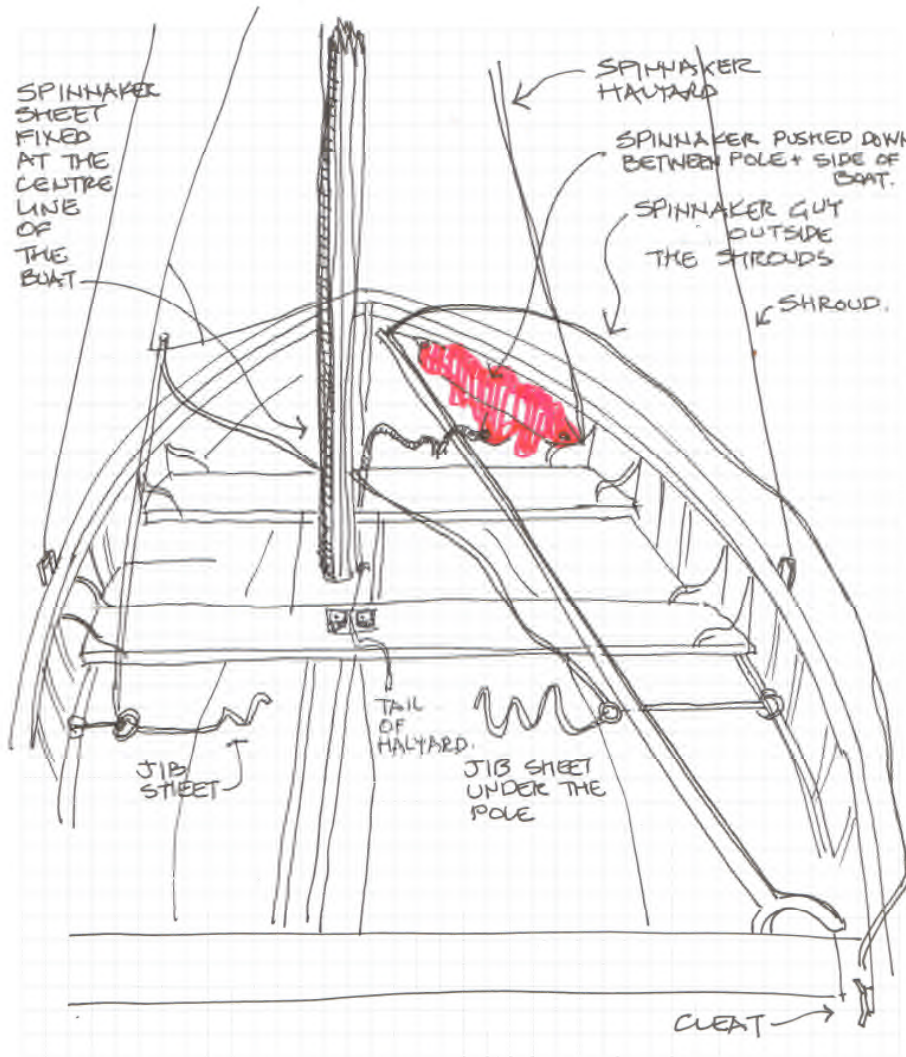 SPINNAKER
SHEET
FIXED
AT THE
CENTRE
LINE
OF
THE
BOAT
SPINNAKER
HALYARD
SPINNAKER PUSHED DOWN
BETWEEN POLE + SIDE OF
BOAT.
SPINNAKER GUY
OUTSIDE
THE SHROUDS
SHROUD.
TAIL
OF
HALYARD.
JIB
SHEET
JIB SHEET
UNDER THE
POLE
CLEAT